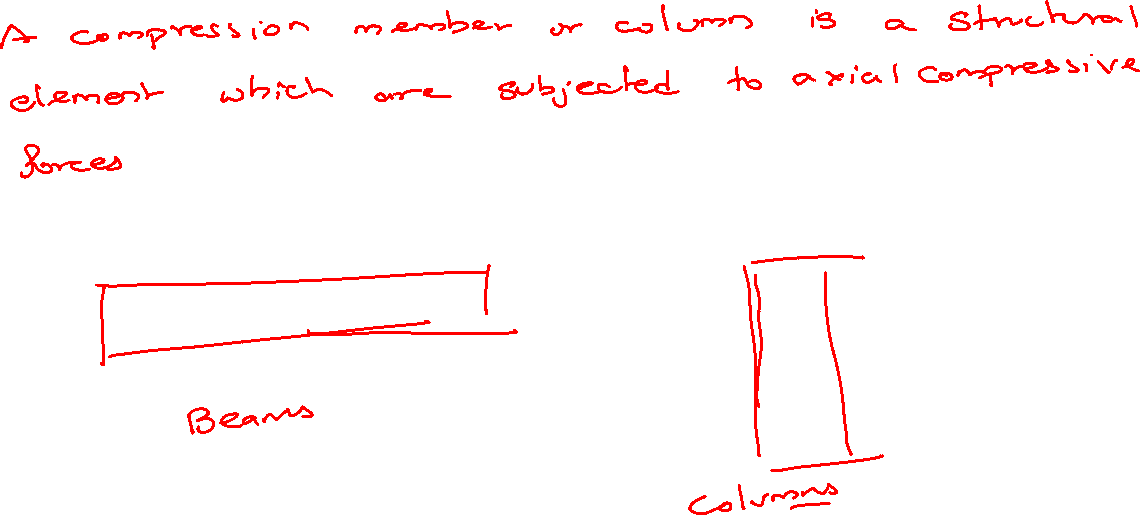 A compression member or column is a structural
element which are subjected to axial compressive
forces
Beams
Columns